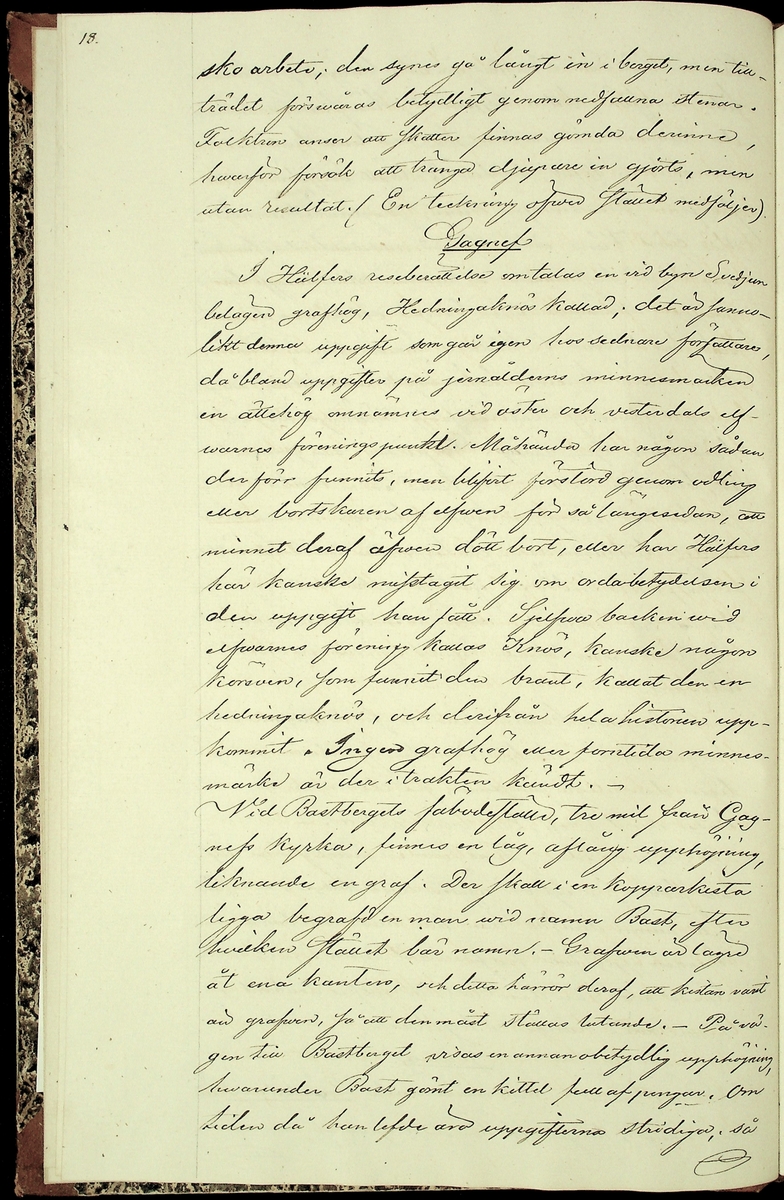 18.
sko arbete; den synes gå långt in i berget, men till-
trädet försvåras betydligt genom nedfallna stenar.
Folktron anser att skatter finnas gömda derinne,
hvarför försök att tränga djupare in gjorts, men
utan resultat. (En teckning öfver stället medföljer).
Gagnef
I Hülfers reseberättelse omtalas en vid byn Svedjan
belägen grafhög, Hedningaknös kallad; det är sanno-
likt denna uppgift som går igen hos sednare författare,
då bland uppgifter på jernålderns minnesmärken
en ättehög omnämnes vid öster och vesterdals elf-
warnes föreningspunkt. Måhända har någon sådan
der förr funnits, men blifvit förstörd genom odling
eller bortskuren af elfwen för så länge sedan, att
minnet deraf äfwen dött bort, eller har Hülfers
här kanske misstagit sig om ordabetydelsen i
den uppgift han fått. Sjelfwa backen wid
elfwarnes förening kallas Knös, kanske någon
körsven, som funnit den brant, kallat den en
hedningaknös, och derifrån hela historien upp-
kommit. Ingen grafhög eller forntida minnes-
märke är der i trakten kändt. —
Vid Bastbergets fäbodeställe, tre mil från Gag-
nefs kyrka, finnes en låg, aflång upphöjning,
liknande en graf. Der skall i en kopparkista
ligga begrafd en man wid namn Bast, efter
hvilken stället bär namn. — Grafwen är lägre
åt ena kanten, och detta härrör deraf, att kistan varit
än grafwen, så att den måst ställas lutande. — På vä-
gen till Bastberget visas en annan obetydlig upphöjning,
hwarunder Bast gömt en kittel full af pengar. Om
tiden då han lefde äro uppgifterna stridiga, så